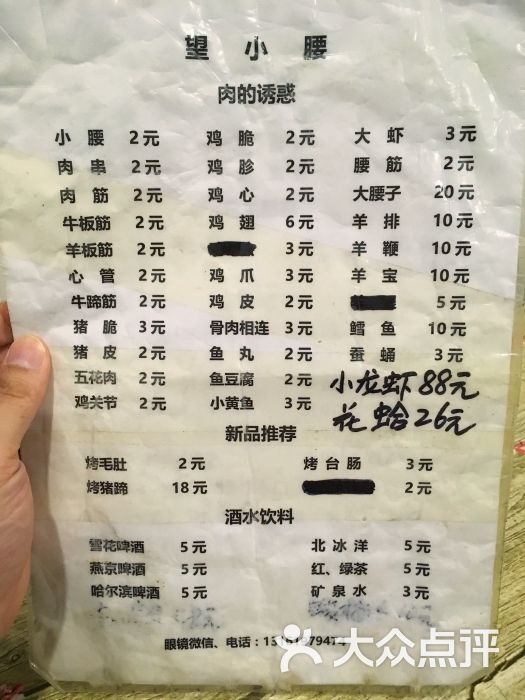 望小腰
肉的诱惑
小腰 2元 鸡脆 2元 大虾 3元
肉串 2元 鸡胗 2元 腰筋 2元
肉筋 2元 鸡心 2元 大腰子 20元
牛板筋 2元 鸡翅 6元 羊排 10元
羊板筋 2元 3元 羊鞭 10元
心管 2元 鸡爪 3元 羊宝 10元
牛蹄筋 2元 鸡皮 2元 5元
猪脆 3元 骨肉相连 3元 鳕鱼 10元
猪皮 2元 鱼丸 2元 蚕蛹 3元
五花肉 2元 鱼豆腐 2元 小龙虾88元
鸡关节 2元 小黄鱼 3元 花蛤26元
新品推荐
烤毛肚 2元 烤台肠 3元
烤猪蹄 18元 2元
酒水饮料
雪花啤酒 5元 北冰洋 5元
燕京啤酒 5元 红、绿茶 5元
哈尔滨啤酒 5元 矿泉水 3元
眼镜微信、电话:
大众点评